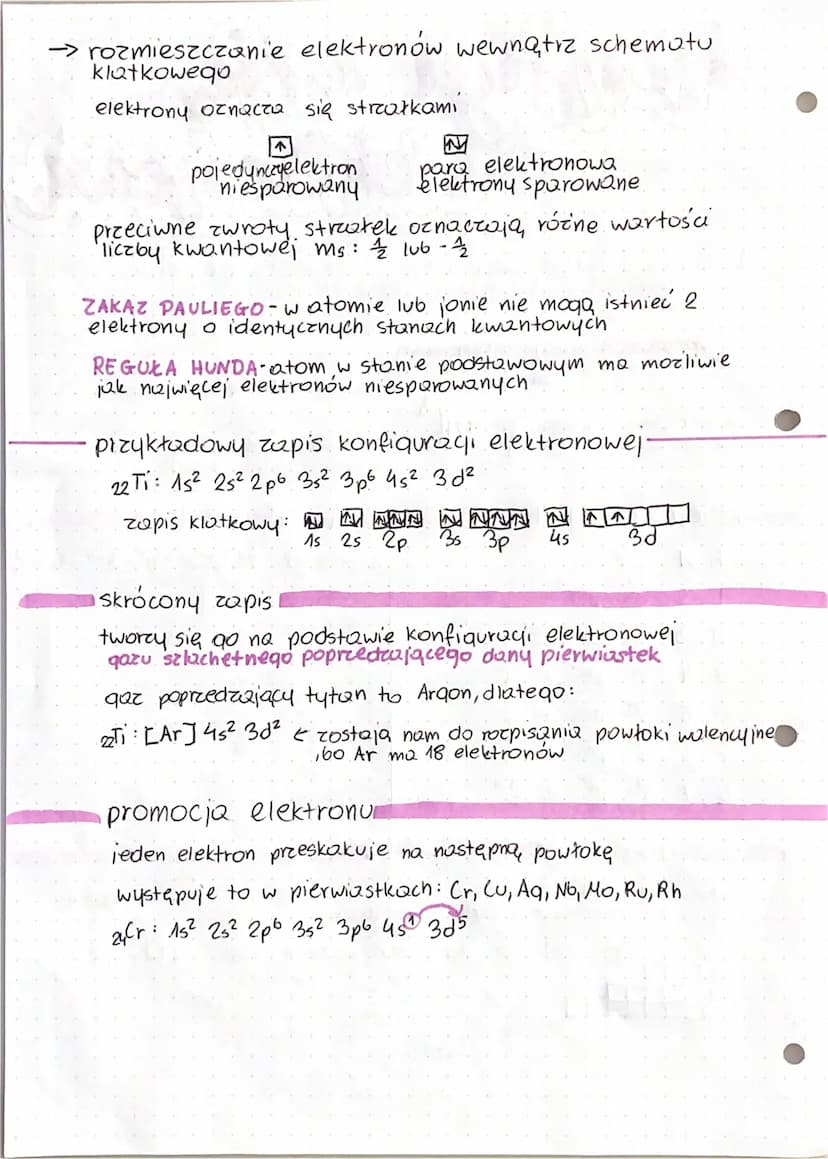 → rozmieszczanie elektronów wewnątrz schematu
klatkowego
elektrony oznacza się strzałkami
↑ ↑↓
pojedynczy elektron para elektronowa
niesparowany elektrony sparowane
przeciwne zwroty strzałek oznaczają różne wartości
liczby kwantowej ms: 1/2 lub -1/2
ZAKAZ PAULIEGO - w atomie lub jonie nie mogą istnieć 2
elektrony o identycznych stanach kwantowych
REGUŁA HUNDA - atom w stanie podstawowym ma możliwie
jak najwięcej elektronów niesparowanych
przykładowy zapis konfiguracji elektronowej
₂₂Ti: 1s² 2s² 2p⁶ 3s² 3p⁶ 4s² 3d²
zapis klatkowy: ↑↓ ↑↓ ↑↓↑↓↑↓ ↑↓ ↑↓↑↓↑↓ ↑↓ ↑↑
1s 2s 2p 3s 3p 4s 3d
skrócony zapis
tworzy się go na podstawie konfiguracji elektronowej
gazu szlachetnego poprzedzającego dany pierwiastek
gaz poprzedzający tytan to Argon, dlatego:
₂₂Ti: [Ar] 4s² 3d² ← zostają nam do rozpisania powłoki walencyjne
, bo Ar ma 18 elektronów
promocja elektronu
jeden elektron przeskakuje na następną powłokę
występuje to w pierwiastkach: Cr, Cu, Ag, Nb, Mo, Ru, Rh
₂₄Cr: 1s² 2s² 2p⁶ 3s² 3p⁶ 4s¹ 3d⁵